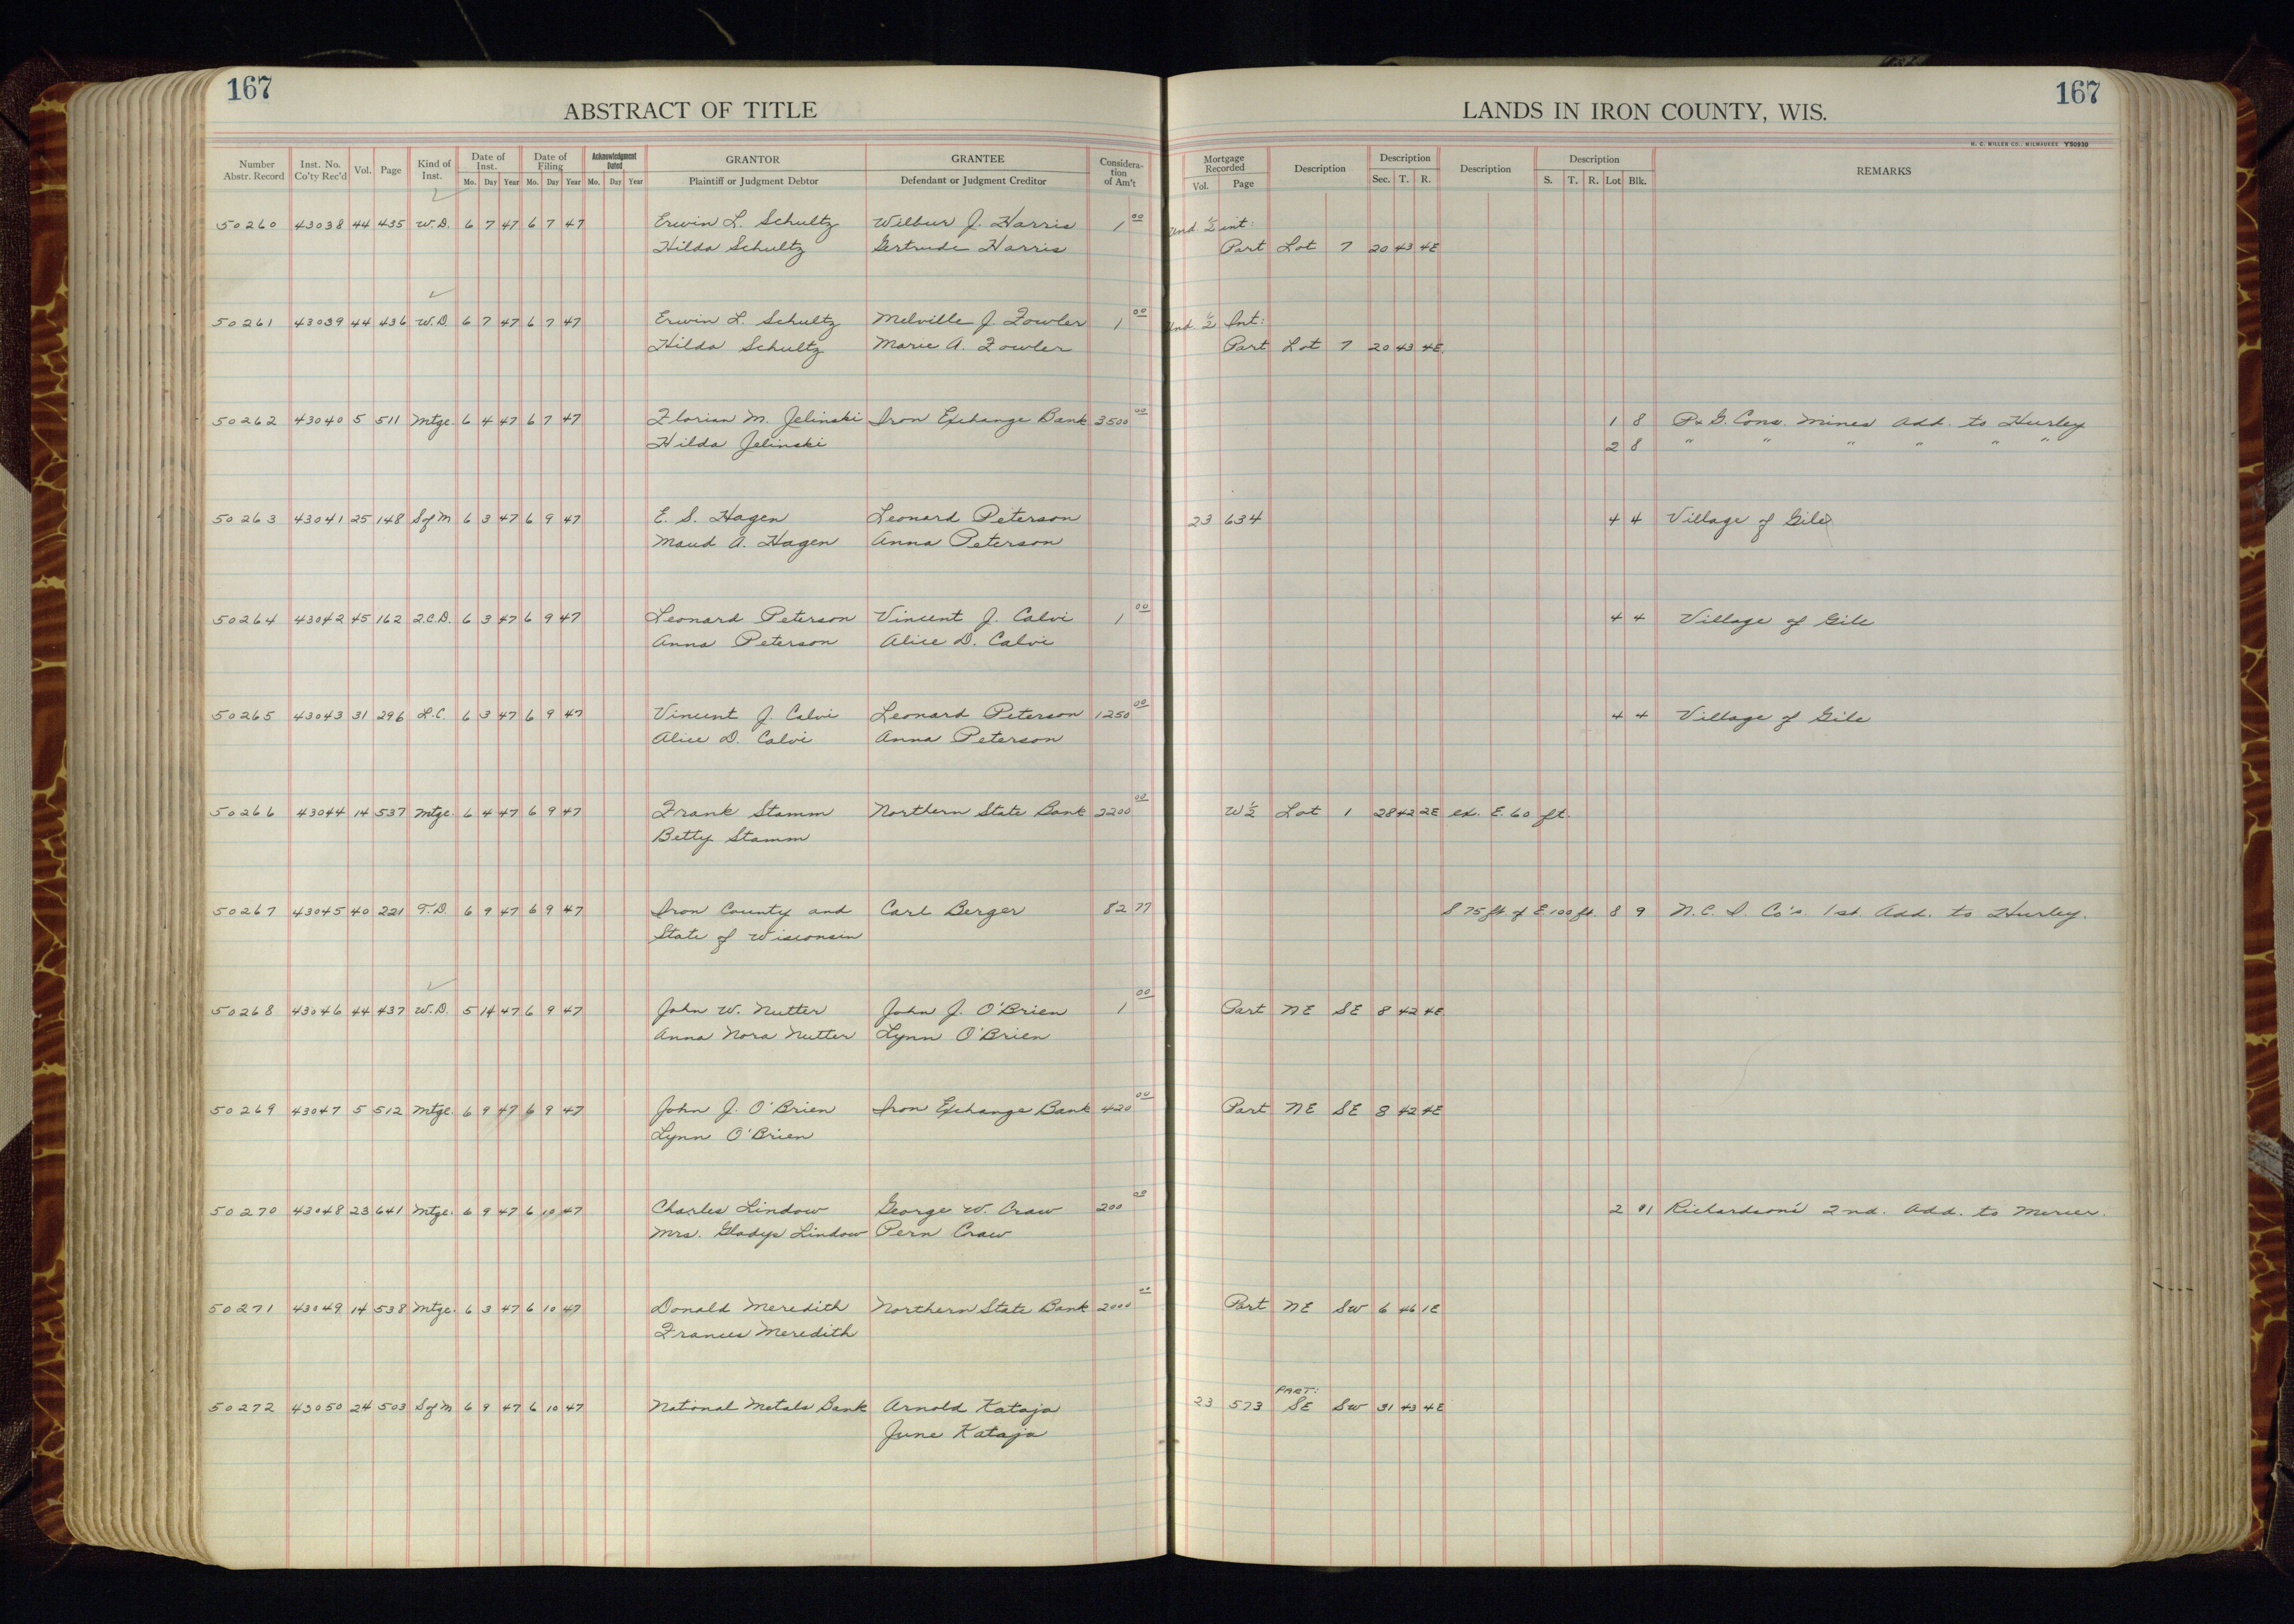 167
ABSTRACT OF TITLE
LANDS IN IRON COUNTY, WIS.
167
H. C. MILLER CO., MILWAUKEE Y50930
Number Abstr. Record Inst. No. Co'ty Rec'd Vol. Page Kind of Inst. Date of Inst. Mo. Day Year Date of Filing Mo. Day Year Acknowledgment Dated Mo. Day Year GRANTOR Plaintiff or Judgment Debtor GRANTEE Defendant or Judgment Creditor Considera-tion of Am't Mortgage Recorded Vol. Page Description Description Sec. T. R. Description Description S. T. R. Lot Blk. REMARKS
50260 43038 44 435 W.D. 6 7 47 6 7 47 Erwin L. Schultz Wilbur J. Harris 1 00 Und. 1/2 int:
Hilda Schultz Gertrude Harris Part Lot 7 20 43 4E
50261 43039 44 436 W.D. 6 7 47 6 7 47 Erwin L. Schultz Melville J. Fowler 1 00 Und. 1/2 Int:
Hilda Schultz Marie A. Fowler Part Lot 7 20 43 4E
50262 43040 5 511 Mtge. 6 4 47 6 7 47 Florian M. Jelinski Iron Exchange Bank 3500 00 1 8 P. & G. Cons. Mines Add. to Hurley
Hilda Jelinski 2 8 " " " " " "
50263 43041 25 148 S of M 6 3 47 6 9 47 E. S. Hagen Leonard Peterson 23 634 4 4 Village of Gile
Maud A. Hagen Anna Peterson
50264 43042 45 162 Q.C.D. 6 3 47 6 9 47 Leonard Peterson Vincent J. Calvi 1 00 4 4 Village of Gile
Anna Peterson Alice D. Calvi
50265 43043 31 296 L.C. 6 3 47 6 9 47 Vincent J. Calvi Leonard Peterson 1250 00 4 4 Village of Gile
Alice D. Calvi Anna Peterson
50266 43044 14 537 Mtge. 6 4 47 6 9 47 Frank Stamm Northern State Bank 2200 00 W 1/2 Lot 1 28 42 2E ex. E. 60 ft.
Betty Stamm
50267 43045 40 221 T.D. 6 9 47 6 9 47 Iron County and Carl Berger 82 77 S 75 ft. of E 100 ft. 8 9 N.C.I. Co's. 1st. Add. to Hurley.
State of Wisconsin
50268 43046 44 437 W.D. 5 14 47 6 9 47 John W. Nutter John J. O'Brien 1 00 Part NE SE 8 42 4E
Anna Nora Nutter Lynn O'Brien
50269 43047 5 512 Mtge. 6 9 47 6 9 47 John J. O'Brien Iron Exchange Bank 420 00 Part NE SE 8 42 4E
Lynn O'Brien
50270 43048 23 641 Mtge. 6 9 47 6 10 47 Charles Lindow George W. Craw 200 00 2 Richardson's 2nd. Add. to Mercer.
Mrs. Gladys Lindow Pern Craw
50271 43049 14 538 Mtge. 6 3 47 6 10 47 Donald Meredith Northern State Bank 2000 00 Part NE SW 6 46 1E
Frances Meredith
50272 43050 24 503 S of M 6 9 47 6 10 47 National Metals Bank Arnold Kataja 23 573 PART: SE SW 31 43 4E
June Kataja